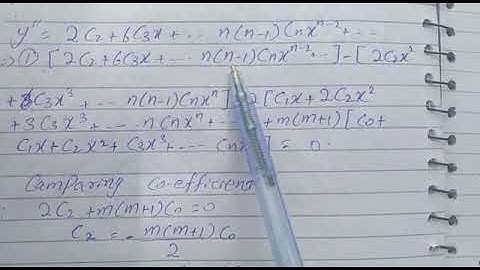 y'' = 2C2+6C3x + ... n(n-1)Cnx^n-2+ ...
⇒ ① [ 2C2+6C3x + ... n(n-1)Cnx^n-2... ] - [ 2C2x^2
C3x^3 + ... n(n-1)Cnx^n] 2[C1x+2C2x^2
+3C3x^3 + ... nCnx^n + +m(m+1)[C0+
C1x+C2x^2+C3x^3+ ... Cn ] = 0.
Comparing co-efficient
2C2 +m(m+1)C0=0
C2 = - m(m+1)C0
2